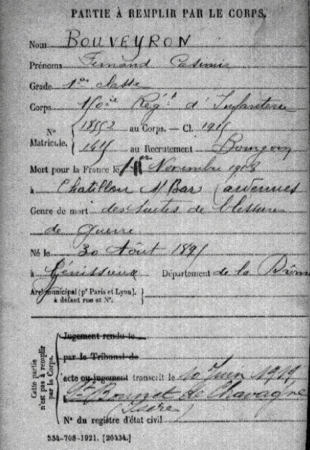 PARTIE À REMPLIR PAR LE CORPS.
Nom BOUVEYRON
Prénoms Fernand Casimir
Grade 1ère classe
Corps 140e Régt d'Infanterie
N° Matricule. 18152 au Corps. — Cl. 1911
au Recrutement Bourgoin
Mort pour la France le 1er Novembre 1918
à Chatillon s/ Bar (ardennes
Genre de mort des suites de blessures
de guerre
Né le 30 Août 1891
à Génissieux Département de la Drôme
Arr municipal (pr Paris et Lyon), à défaut rue et N°.
Cette partie n'est pas à remplir par le Corps.
Jugement rendu le
par le Tribunal de
acte ou jugement transcrit le 10 Juin 1919
à St Bonnet de Chavagne
Isère)
N° du registre d'état civil
534-708-1921. [26434.]